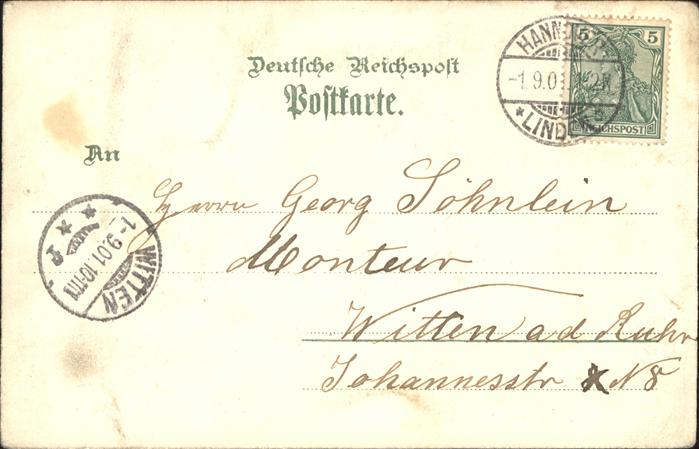 Deutsche Reichspost
Postkarte.
5 5
REICHSPOST
HANNOVER
-1.9.01
*LINDEN
An
Herrn Georg Söhnlein
Monteur
Witten a d Ruhr
Johannesstr N 8
WITTEN
1-9.01.